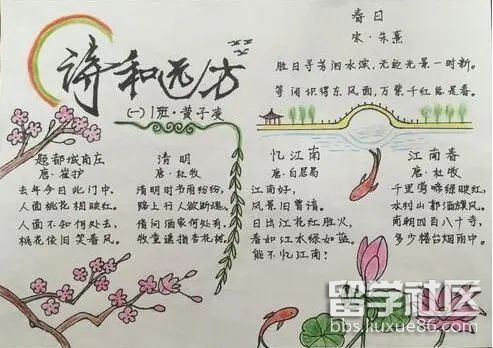 诗和远方
(一)1班·黄子凌
春日
宋·朱熹
胜日寻芳泗水滨，无边光景一时新。
等闲识得东风面，万紫千红总是春。
题都城南庄
唐·崔护
去年今日此门中，
人面桃花相映红。
人面不知何处去，
桃花依旧笑春风。
清明
唐·杜牧
清明时节雨纷纷，
路上行人欲断魂。
借问酒家何处有，
牧童遥指杏花村。
忆江南
唐·白居易
江南好，
风景旧曾谙。
日出江花红胜火，
春如江水绿如蓝。
能不忆江南？
江南春
唐·杜牧
千里莺啼绿映红，
水村山郭酒旗风。
南朝四百八十寺，
多少楼台烟雨中。
留学社区
bbs.liuxue86.com